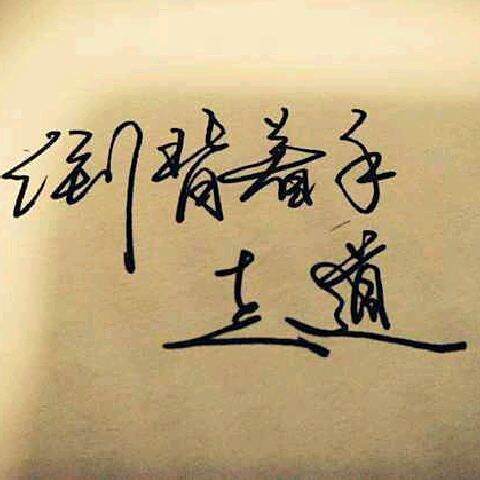 倒背着手
走道